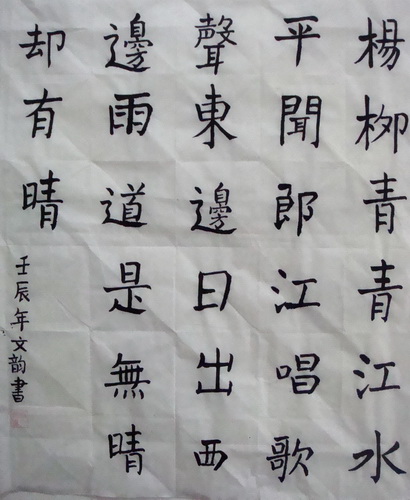 楊柳青青江水
平聞郎江唱歌
聲東邊日出西
邊雨道是無晴
却有晴
壬辰年文韵書